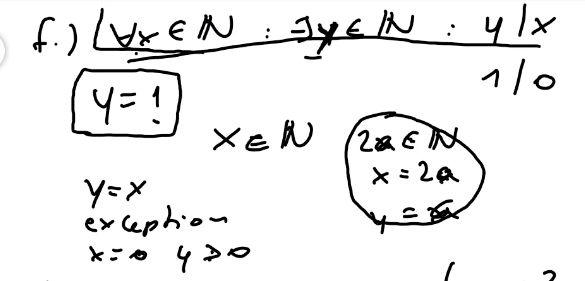 f.) ∀x ∈ ℕ : ∃y ∈ ℕ : y | x
1 | 0
y = 1
x ∈ ℕ
∈ ℕ
x = 2a
y =
y = x
exception
x = 0 y > 0